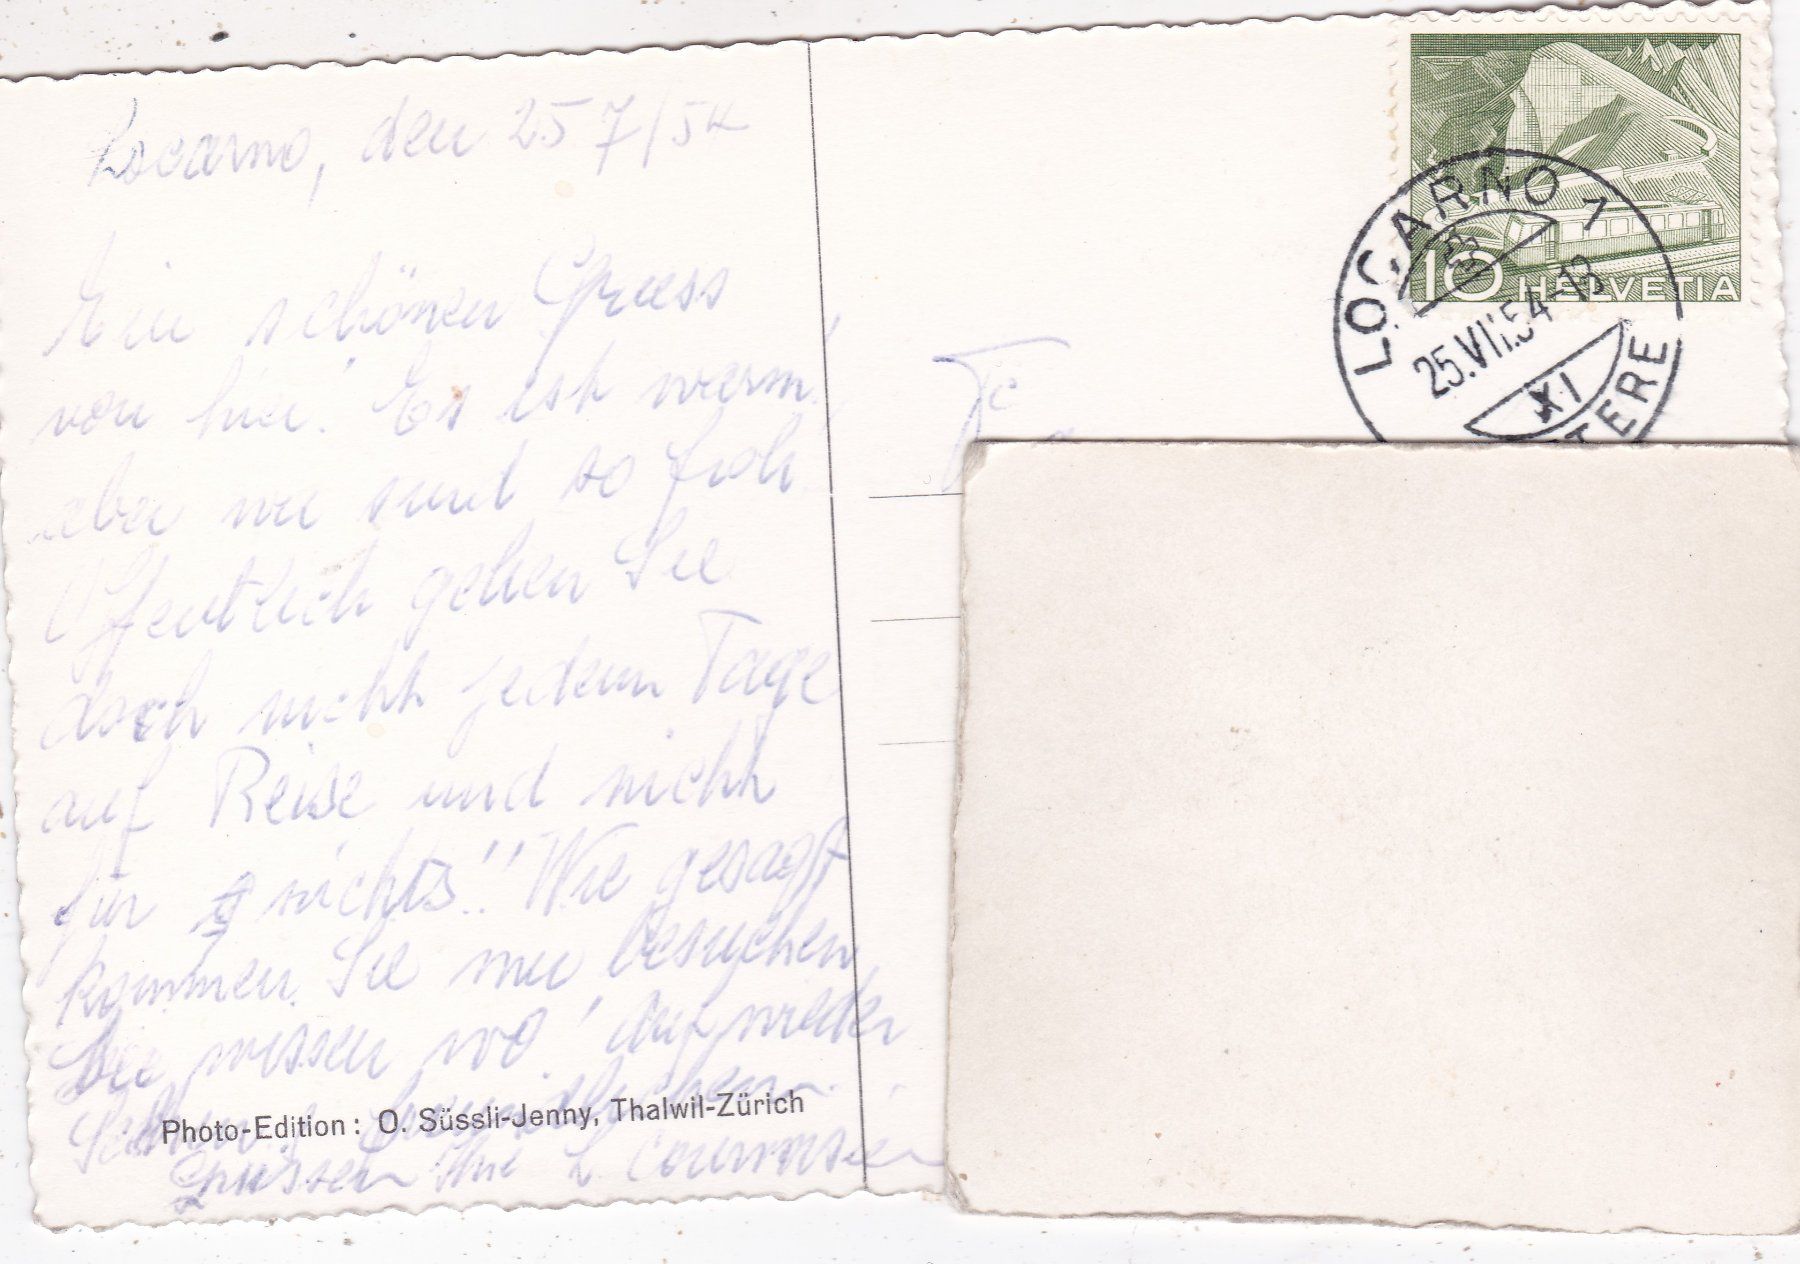 Locarno, den 25 7/54
Ein schönen Gruss
von hier! Es ist warm,
aber wir sind so froh.
Öffentlich gehen Sie
doch nicht jedem Tage
auf Reise und nicht
für nichts!! Wie gesagt
kommen Sie mir besuchen,
Sie wissen wo! Auf wieder
Sehen freundlichen
Grüssen Ihre L.
Photo-Edition: O. Süssli-Jenny, Thalwil-Zürich
10 HELVETIA
LOCARNO 1
25.VII.54-13
XI